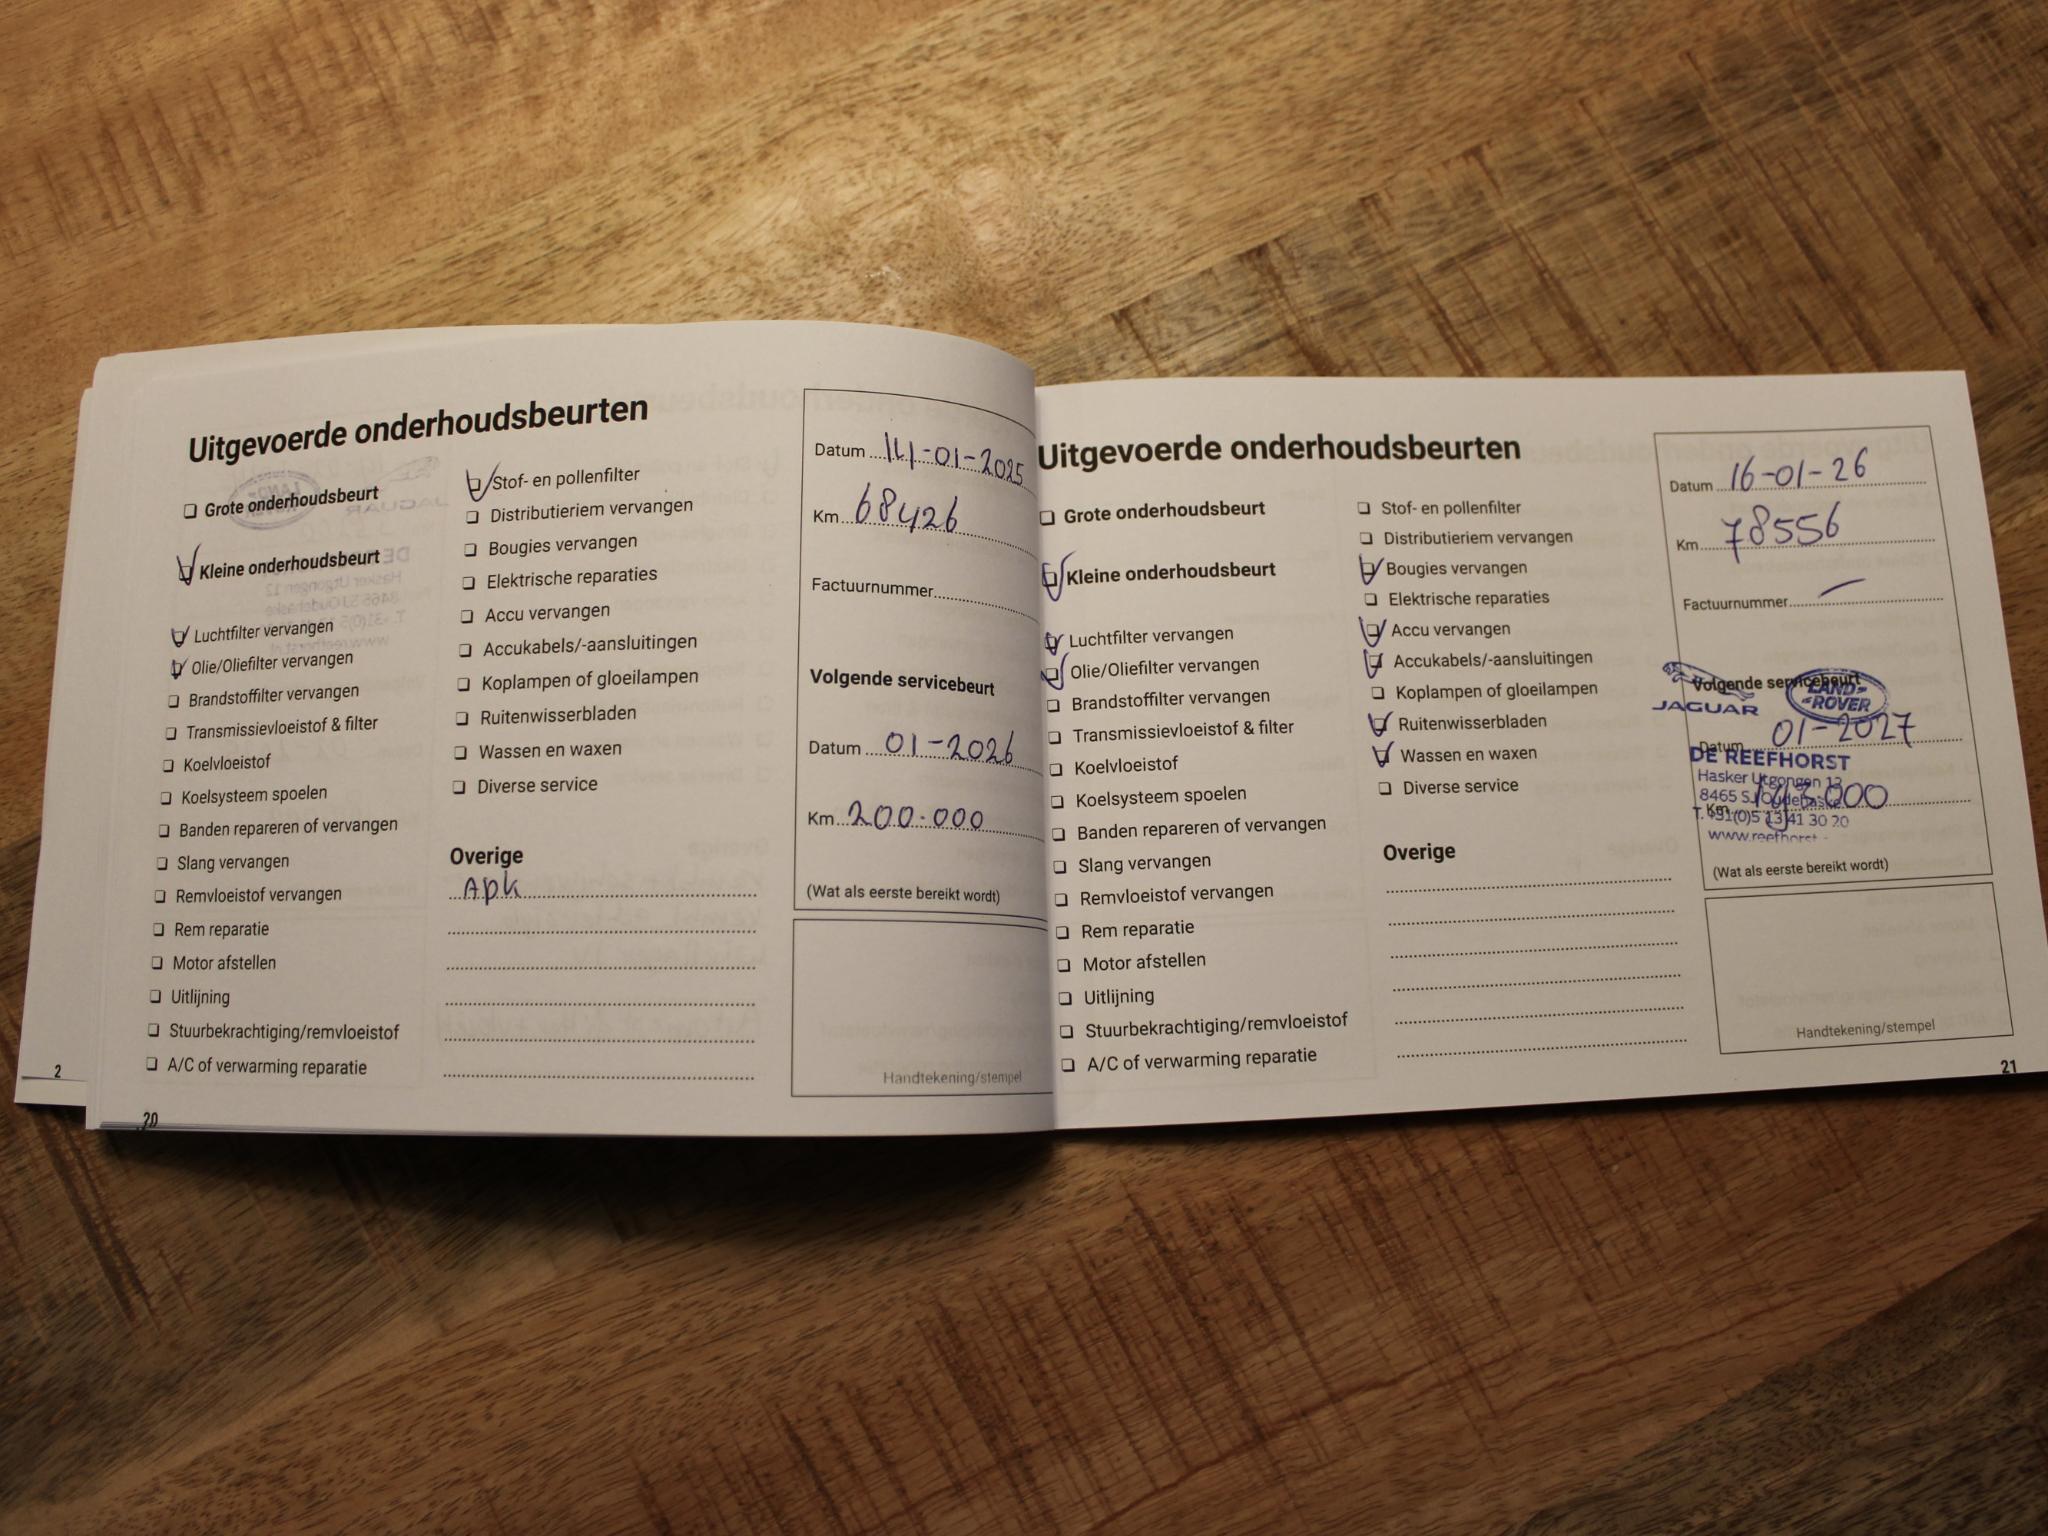 Uitgevoerde onderhoudsbeurten
Grote onderhoudsbeurt
Kleine onderhoudsbeurt
Luchtfilter vervangen
Olie/Oliefilter vervangen
Brandstoffilter vervangen
Transmissievloeistof & filter
Koelvloeistof
Koelsysteem spoelen
Banden repareren of vervangen
Slang vervangen
Remvloeistof vervangen
Rem reparatie
Motor afstellen
Uitlijning
Stuurbekrachtiging/remvloeistof
A/C of verwarming reparatie
Stof- en pollenfilter
Distributieriem vervangen
Bougies vervangen
Elektrische reparaties
Accu vervangen
Accukabels/-aansluitingen
Koplampen of gloeilampen
Ruitenwisserbladen
Wassen en waxen
Diverse service
Overige
Apk
Datum 14-01-2025
Km 68426
Factuurnummer
Volgende servicebeurt
Datum 01-2026
Km 200.000
(Wat als eerste bereikt wordt)
Handtekening/stempel
2
20
Uitgevoerde onderhoudsbeurten
Grote onderhoudsbeurt
Kleine onderhoudsbeurt
Luchtfilter vervangen
Olie/Oliefilter vervangen
Brandstoffilter vervangen
Transmissievloeistof & filter
Koelvloeistof
Koelsysteem spoelen
Banden repareren of vervangen
Slang vervangen
Remvloeistof vervangen
Rem reparatie
Motor afstellen
Uitlijning
Stuurbekrachtiging/remvloeistof
A/C of verwarming reparatie
Stof- en pollenfilter
Distributieriem vervangen
Bougies vervangen
Elektrische reparaties
Accu vervangen
Accukabels/-aansluitingen
Koplampen of gloeilampen
Ruitenwisserbladen
Wassen en waxen
Diverse service
Overige
Datum 16-01-26
Km 78556
Factuurnummer
Volgende servicebeurt
JAGUAR
LAND-ROVER
Datum 01-2027
DE REEFHORST
Hasker Utgongen 12
8465 SJ Oudehaske
Km
T. +31(0)5 13 41 30 20
(Wat als eerste bereikt wordt)
Handtekening/stempel
21